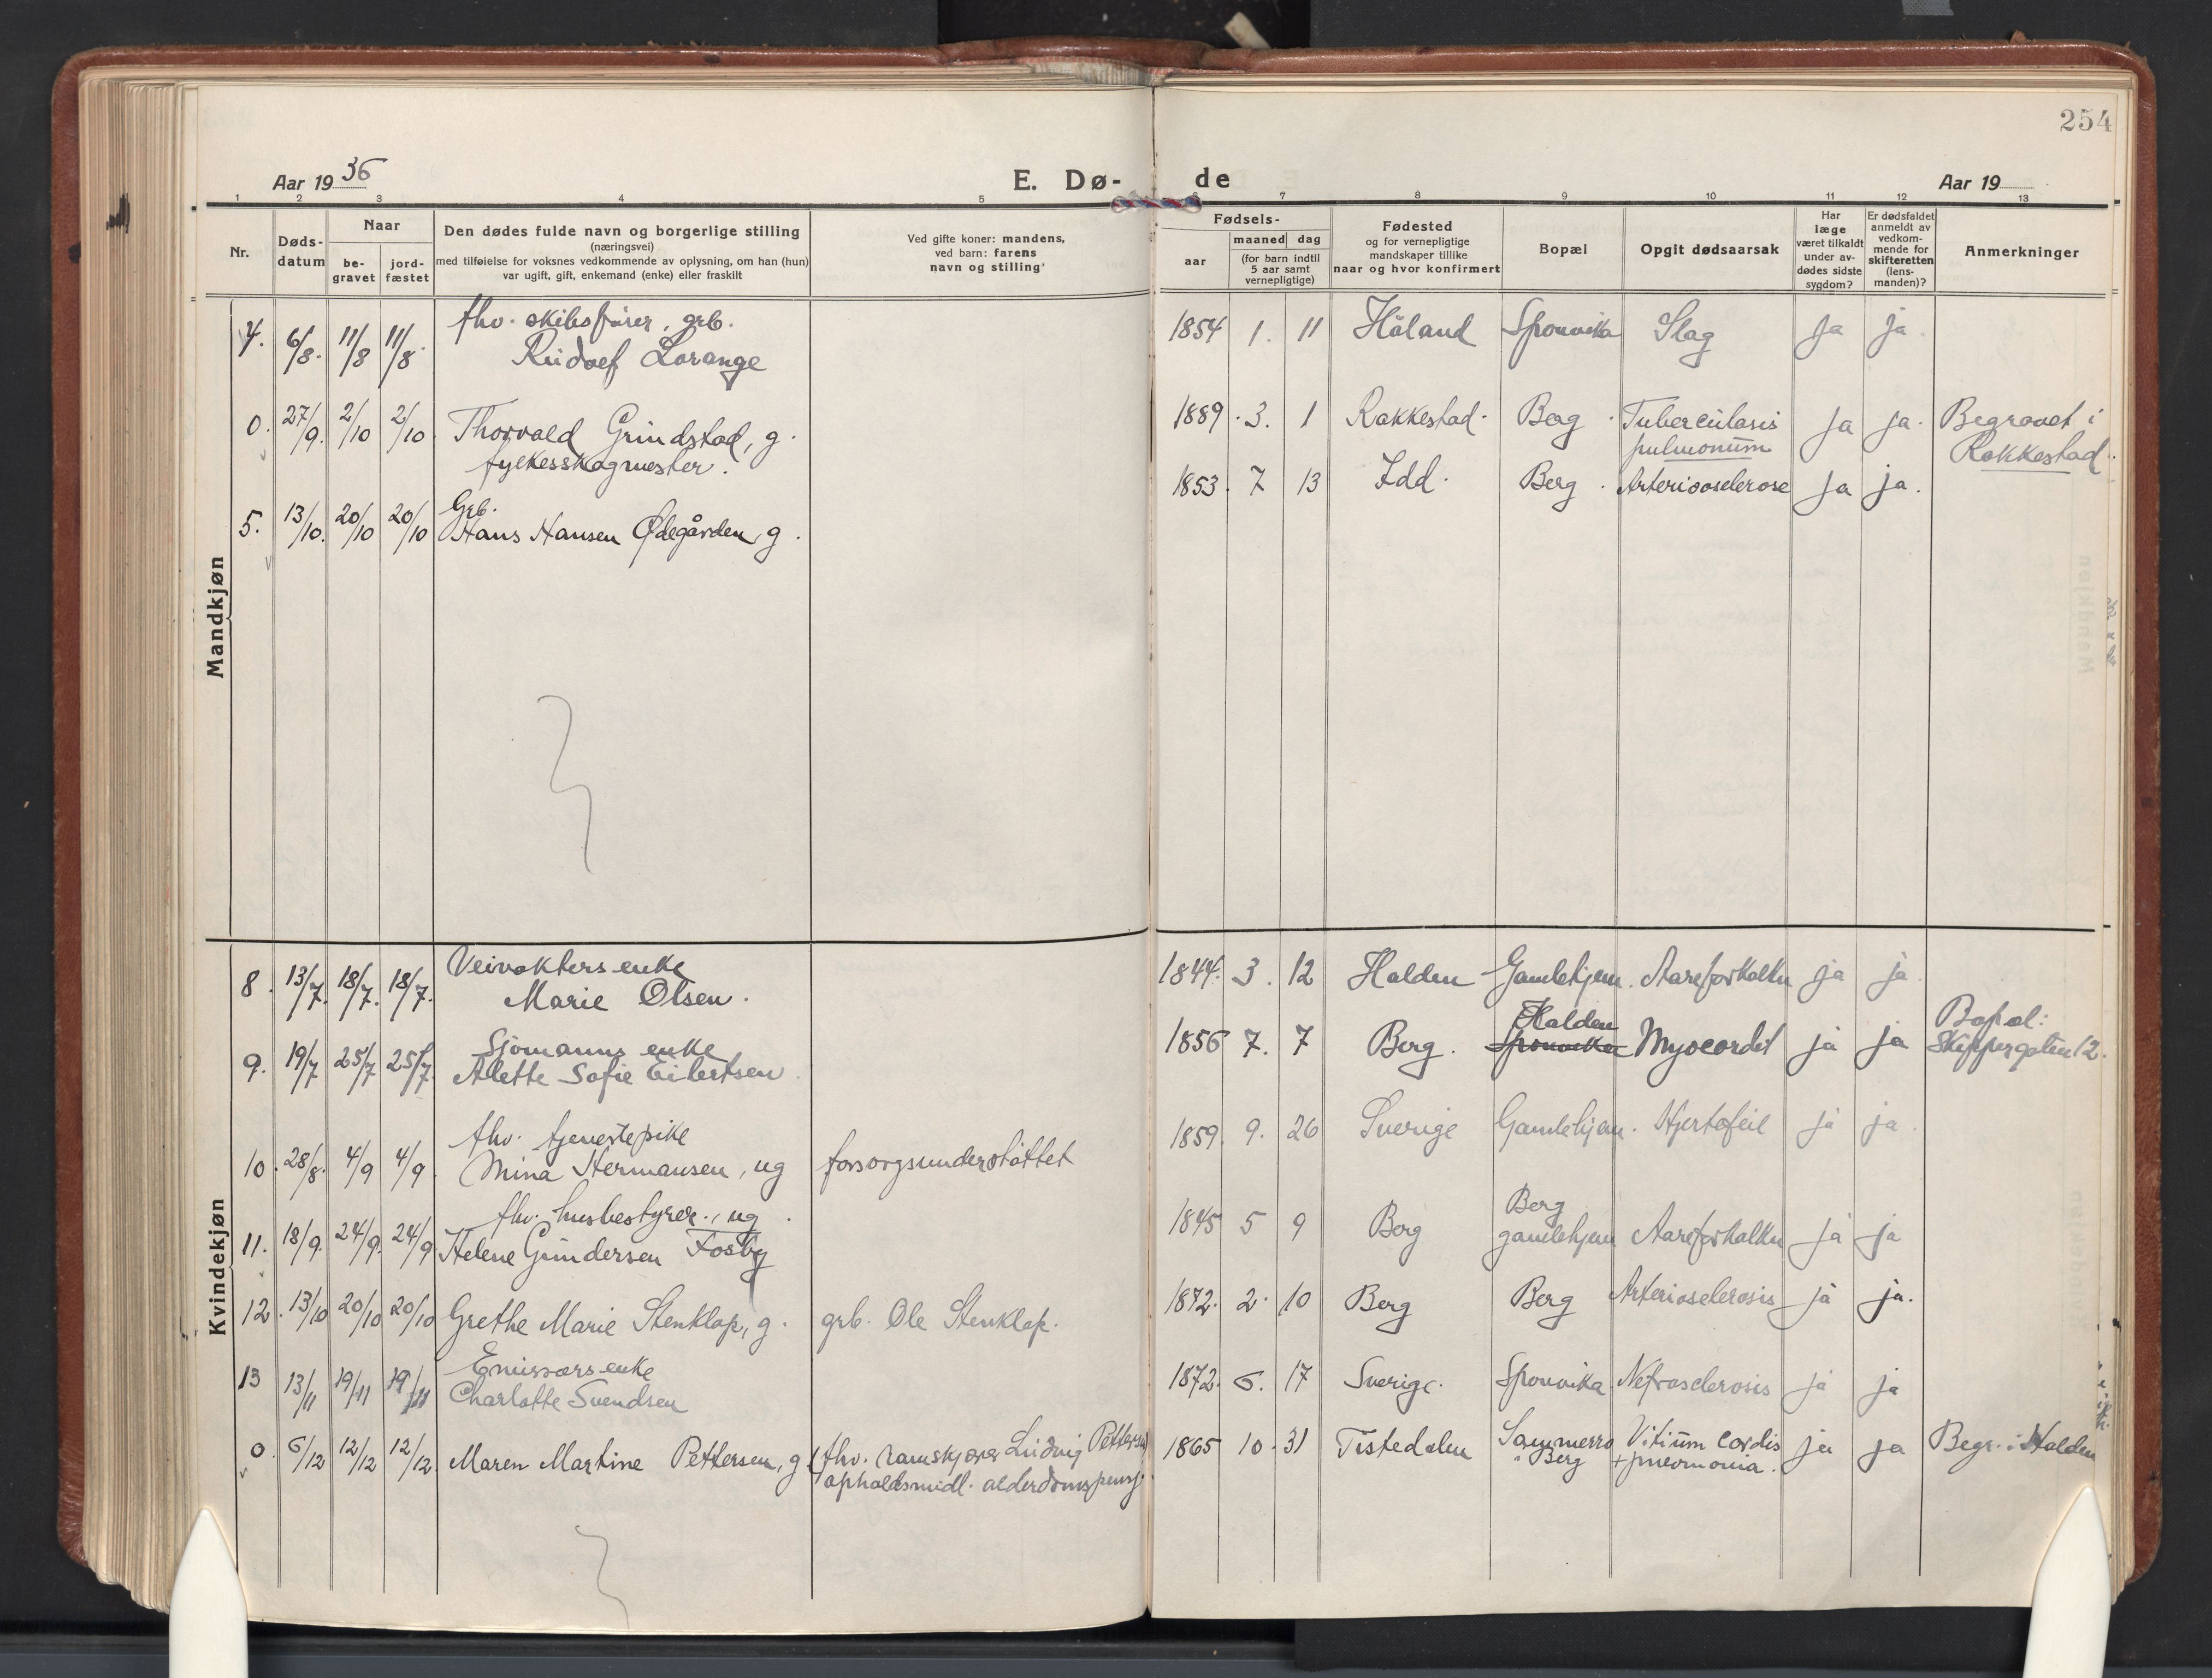 254
Aar 1936
E. Dø-de
Aar 19
1 2 3 4 5 6 7 8 9 10 11 12 13
Nr.
Døds-
datum
Naar
be-
gravet
jord-
fæstet
Den dødes fulde navn og borgerlige stilling
(næringsvei)
med tilføielse for voksnes vedkommende av oplysning, om han (hun)
var ugift, gift, enkemand (enke) eller fraskilt
Ved gifte koner: mandens,
ved barn: farens
navn og stilling
Fødsels-
aar
maaned dag
(for barn indtil
5 aar samt
vernepligtige)
Fødested
og for vernepligtige
mandskaper tillike
naar og hvor konfirmert
Bopæl
Opgit dødsaarsak
Har
læge
været tilkaldt
under av-
dødes sidste
sygdom?
Er dødsfaldet
anmeldt av
vedkom-
mende for
skifteretten
(lens-
manden)?
Anmerkninger
Mandkjøn
fhv. skibsfører, grb.
4. 6/8. 11/8 11/8. Rudolf Lorange 1854 1. 11 Håland Sponvika Slag ja ja.
0. 27/9. 2/10 2/10. Thorvald Grindstad, g. 1889. 3. 1 Rakkestad. Berg. Tuberculosis ja ja. Begravet i
fylkesskogmester. pulmonum Rakkestad.
Grb.
5. 13/10. 20/10 20/10 Hans Hansen Ødegården, g. 1853. 7 13 Idd. Berg. Arteriosclerose ja ja.
Kvindekjøn
Veivokters enke
8. 13/7. 18/7. 18/7. Marie Olsen. 1844. 3. 12 Halden Gamlehjem. Aareforkalkn ja ja.
Sjømanns enke Halden Bopæl:
9. 19/7 25/7 25/7. Alette Sofie Eilertsen. 1856 7. 7 Berg. Sponvika Myocardit ja ja Skippergaten 12.
fhv. tjenestepike
10. 28/8. 4/9 4/9. Mina Hermansen, ug forsorgsunderstøttet 1859. 9. 26 Sverige Gamlehjem. Hjertefeil ja ja.
fhv. husbestyrer., ug. Berg
11. 18/9. 24/9. 24/9 Helene Gundersen Fosby 1845 5 9 Berg gamlehjem Aareforkalkn ja ja
12. 13/10 20/10 20/10 Grethe Marie Stenklap, g. grb. Ole Stenklap. 1872. 2. 10 Berg Berg Arteriosclerosis ja ja.
Emissærs enke
13 13/11 19/11 19/11 Charlotte Svendsen 1872. 6. 17 Sverige. Sponvika Nefrosclerosis ja ja
0. 6/12 12/12 12/12. Maren Martine Pettersen, g. fhv. ramskjærer Ludvig Pettersen 1865 10. 31 Tistedalen Sommerro Vitium cordis ja ja Begr. i Halden
opholdsmidl. alderdomspensj. i Berg + pneumonia.